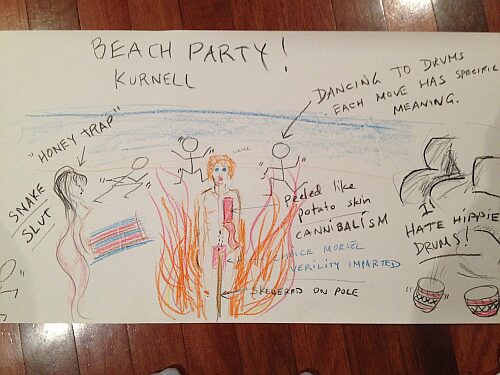 BEACH PARTY!
KURNELL
DANCING TO DRUMS
EACH MOVE HAS SPECIFIC
MEANING.
"HONEY TRAP"
SNAKE
SLUT
WATER
Peeled like
potato skin
CANNIBALISM
CHOICE MORSEL
VERILITY IMPARTED
SKEWERED ON POLE
I
HATE HIPPIE
DRUMS!